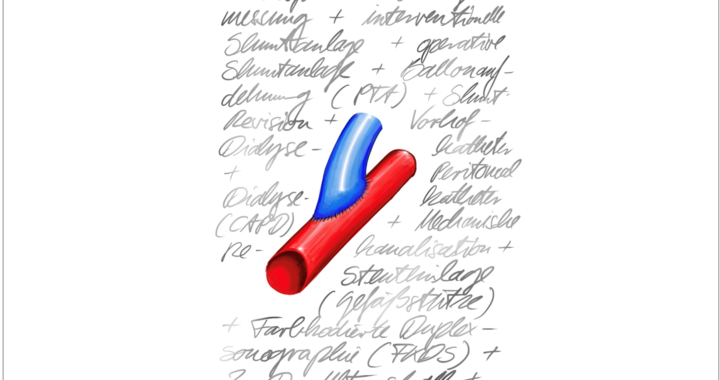 messung + interventionelle
Shuntanlage + operative
Shuntanlage + Ballonauf-
dehnung (PTA) + Shunt-
Revision + Vorhof-
Dialyse- katheter
+ Peritoneal
Dialyse- katheter
(CAPD) + Mechanische
Re- kanalisation +
Stenteinlage
(gefäßstütze)
+ Farbkodierte Duplex-
sonographie (FKDS) +